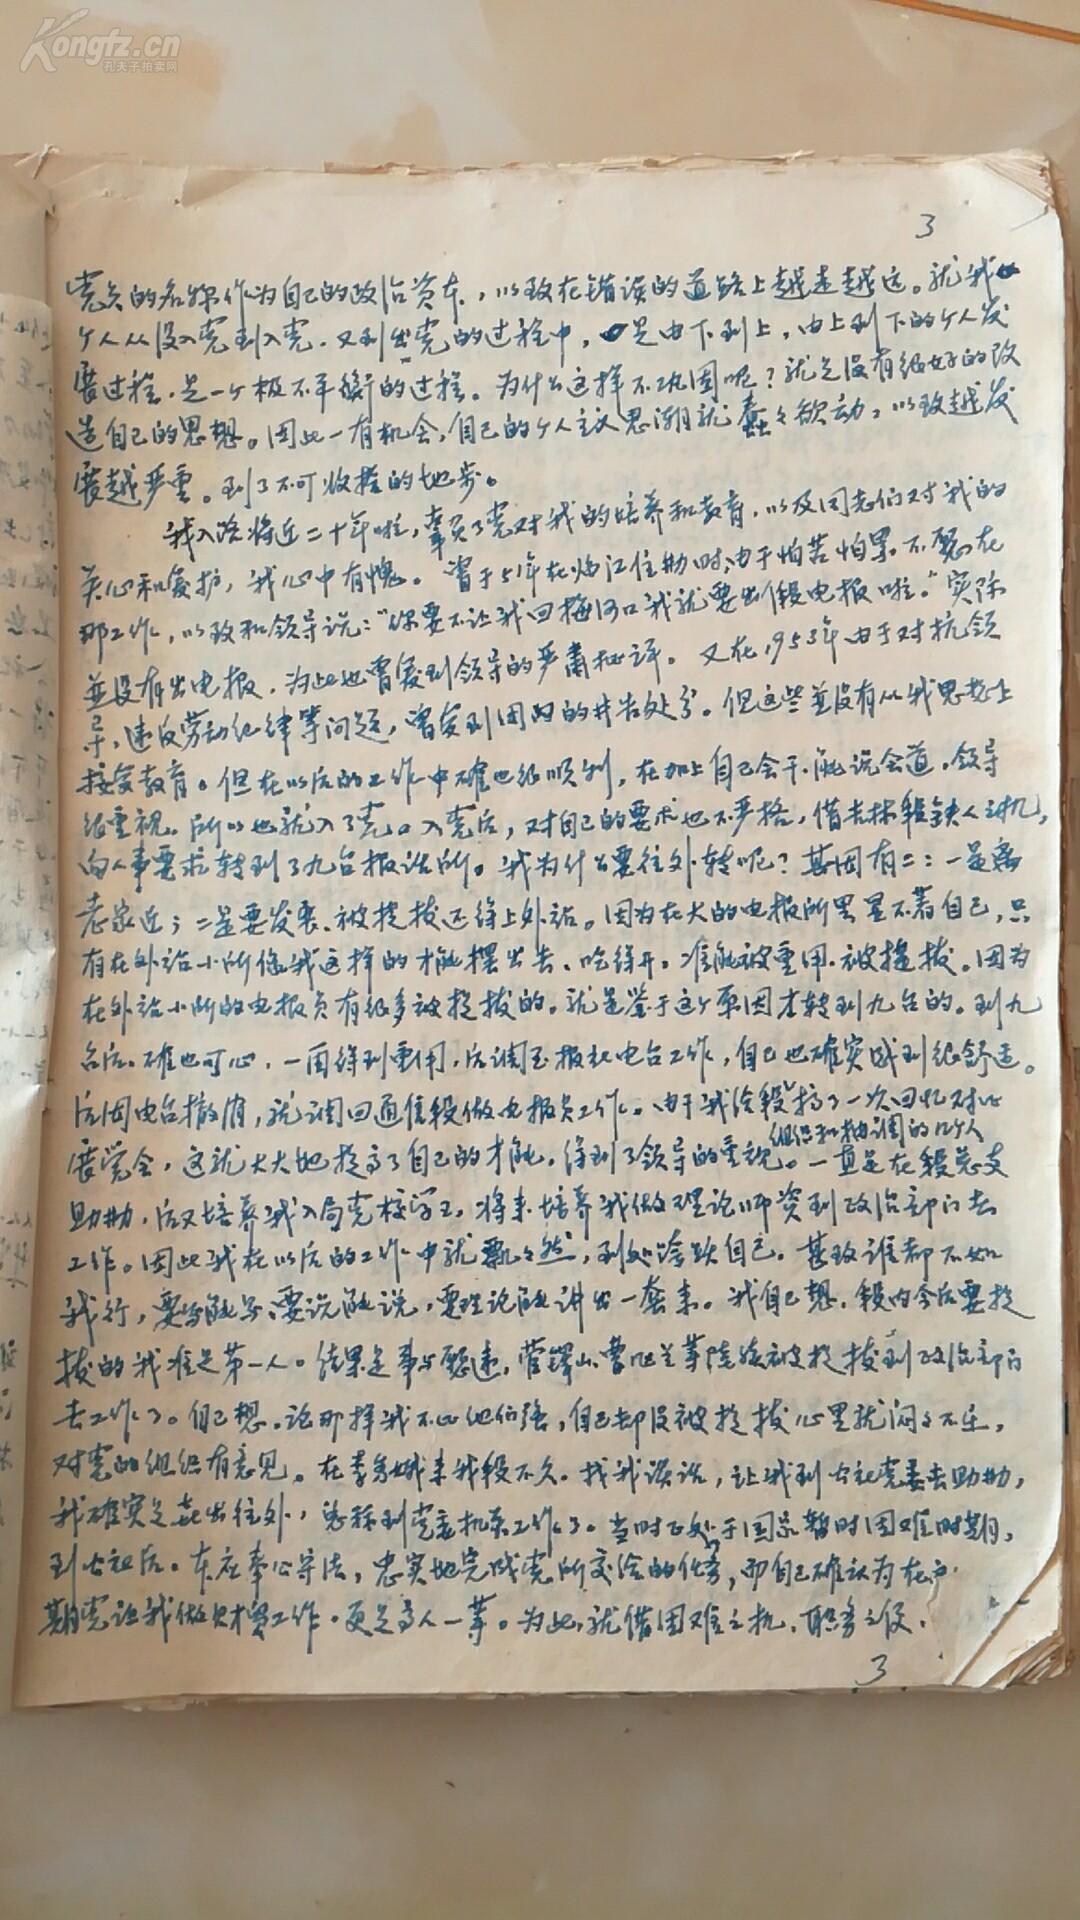 Kongfz.cn
孔夫子拍卖网
3
党员的名称作为自己的政治资本，以致在错误的道路上越走越远。就我
个人从没入党到入党，又到出党的过程中，是由下到上，由上到下的个人发
展过程，是一个极不平衡的过程。为什么这样不巩固呢？就是没有很好的改
造自己的思想。因此一有机会，自己的个人主义思潮就蠢々欲动，以致越发
展越严重。到了不可收拾的地步。
我入路将近二十年啦，辜负了党对我的培养和教育，以及同志们对我的
关心和爱护，我心中有愧。曾于51年在临江住勤时，由于怕苦怕累，不愿在
那工作，以致和领导说：“你要不让我回梅河口我就要出假电报啦。”实际
並没有出电报，为此也曾受到领导的严肃批评。又在1953年由于对抗领
导，违反劳动纪律等问题，曾受到团内的警告处分。但这些並没有从我思想上
接受教育。但在以后的工作中确也很顺利，在加上自己会干、能说会道，领导
很重视。所以也就入了党。入党后，对自己的要求也不严格，借吉林段缺人之机，
向人事要求转到了九台报话所。我为什么要往外转呢？其因有二：一是离
老家近；二是要发展、被提拔还得上外站。因为在大的电报所里显不着自己，只
有在外站小所像我这样的才能摆出去、吃得开。准能被重用、被提拔。因为
在外站小所的电报员有很多被提拔的。就是鉴于这个原因才转到九台的。到九
台后，确也可心，一面得到重用，后调至报社电台工作，自己也确实感到很舒适。
后因电台撤消，就调回通信段做电报员工作。由于我给段搞了一次回忆对比
展览会，这就大大地提高了自己的才能，得到了领导的重视。一直是在段总支
组织和抽调的几个人
助勤，后又培养我入局党校学习，将来培养我做理论师资到政治部门去
工作。因此我在以后的工作中就飘々然，到处夸跃自己。甚致谁都不如
我行，要写能写、要说能说，要理论能讲出一套来。我自己想，段内今后要提
拔的我准是第一人。结果是事与愿违，等陆续被提拔到政治部门
去工作了。自己想，论那样我不比他们强，自己却没被提拔心里就闷々不乐，
对党的组织有意见。在来我段不久，找我谈话，让我到公社党委去助勤，
我确实是喜出往外，总算到党委机关工作了。当时正处于国家暂时困难时期，
到公社后，本应奉公守法，忠实地完成党所交给的任务，而自己确认为在
期党让我做财贸工作，更是高人一等。为此，就借困难之机，职务之便，
3